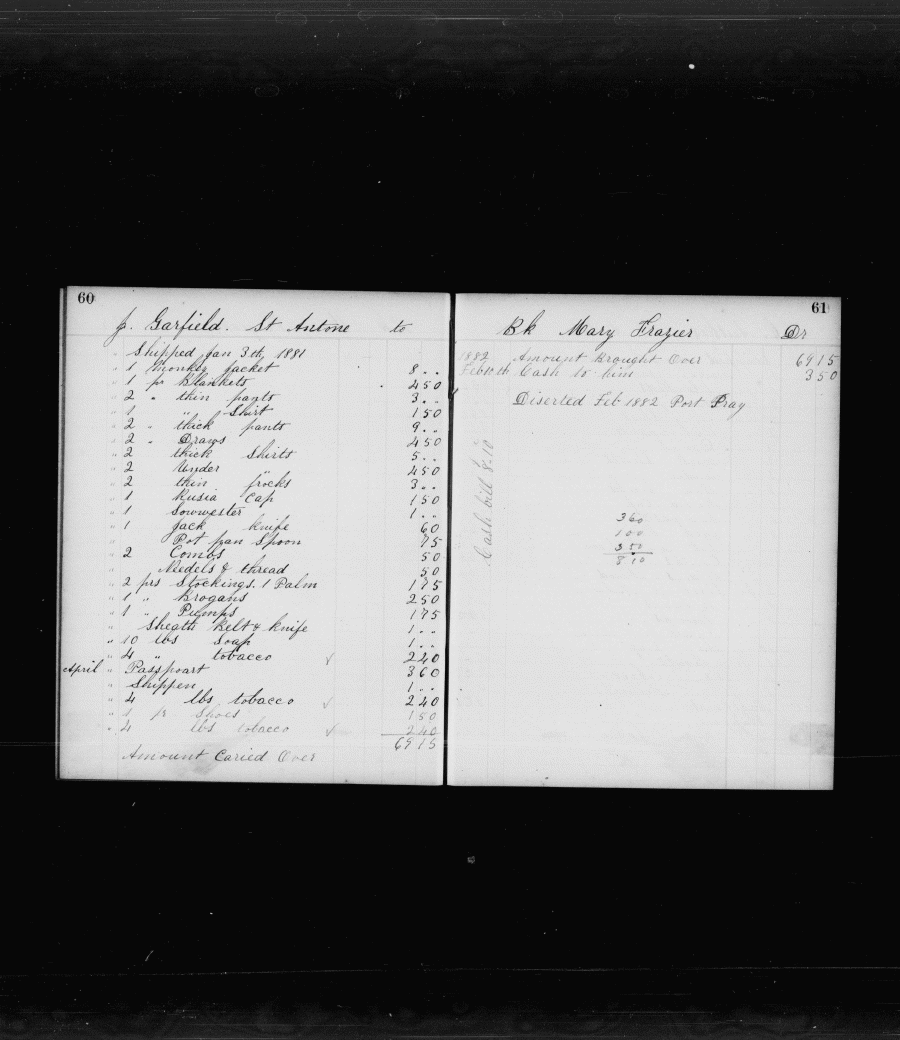 60
J. Garfield. St Antone to
" Shipped Jan 3th, 1881
" 1 monkey Jacket 8 . .
" 1 pr Blankets 4 50
" 2 " thin pants 3 . .
" 1 " Shirt 1 50
" 2 " thick pants 9 . .
" 2 " Draws 4 50
" 2 thick Shirts 5 . .
" 2 Under " 4 50
" 2 thin frocks 3 . .
" 1 Rusia Cap 1 50
" 1 Sowwester 1 . .
" 1 Jack knife 60
" Pot pan Spoon 75
" 2 Combs 50
" Nedels & thread 50
" 2 prs Stockings. 1 Palm 1 75
" 1 " Brogans 2 50
" 1 " Pumps 1 75
" Sheath Belt & knife 1 . .
" 10 lbs Soap 1 . .
" 4 " tobacco √ 2 40
April " Passpoart 3 60
" Shippen 1 . .
" 4 lbs tobacco √ 2 40
" 1 pr Shoes 1 50
" 4 lbs tobacco √ 2 40
69 15
Amount Caried Over
61
Bk Mary Frazier Dr
1882 Amount Brought Over 69 15
Feb 10th Cash to him 3 50
Diserted Feb 1882 Port Pray
Cash bill 8.10
3 60
1 00
3 50
8 10